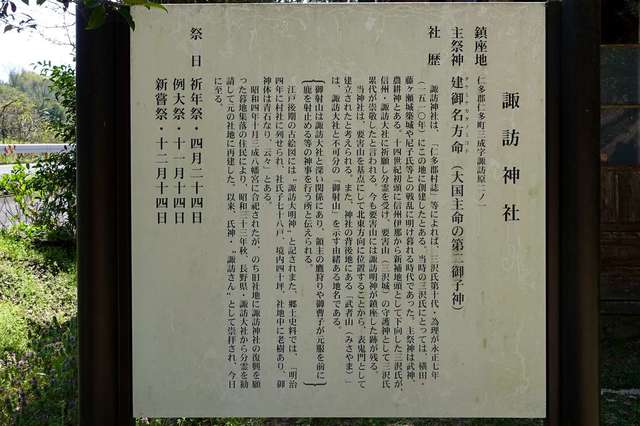 諏訪神社
鎮座地 仁多郡仁多町三成字諏訪原二ノ一
主祭神 建御名方命（大国主命の第二御子神）
タケミナカタノミコト
社歴
諏訪神社は、「仁多郡村誌」等によれば、三沢氏第五代・為理が永正七年
（一五一〇年）にこの地に創建したとある。当時の三沢氏にとっては、横田・
藤ヶ瀬城築城や尼子氏等との戦乱に明け暮れる時代であった。主祭神は武神、
農耕神とある。十四世紀初頭に信州伊那から新補地頭として下向した三沢氏が、
信州・諏訪大社に祈願し分霊を受け、要害山（三沢城）の守護神として三沢氏
累代が崇敬したと言われる。今も要害山には諏訪明神が鎮座した跡が残る。
当神社は、要害山を基点にして北東方向に位置することから、表鬼門として
建立されたと考えられる。また、神社の背後地にある「武者山（みさやま）」
は、諏訪大社と不可分の「御射山」を示す由緒ある地名である。
（御射山は諏訪大社と深い関係にあり、領主の鷹狩りや御曹子が元服を前に
鹿を射止める等の神事を行う所と伝えられる。）
江戸後期の古絵図には〝諏訪大明神〟と記されまた、郷土史料では、「明治
四年に村社に列せられ、社氏子七十八戸、境内四十坪、社地中に老樹あり、御
神体は青石なり、云々」とある。
昭和四年十月三成八幡宮に合祀されたが、のち旧社地に諏訪神社の復興を願
った暮地集落の住民により、昭和三十三年秋、長野県・諏訪大社から分霊を勧
請して元の社地に再建した。以来、氏神・〝諏訪さん〟として崇拝され、今日
に至る。
祭日 祈年祭・四月二十四日
例大祭・十一月十四日
新嘗祭・十二月十四日